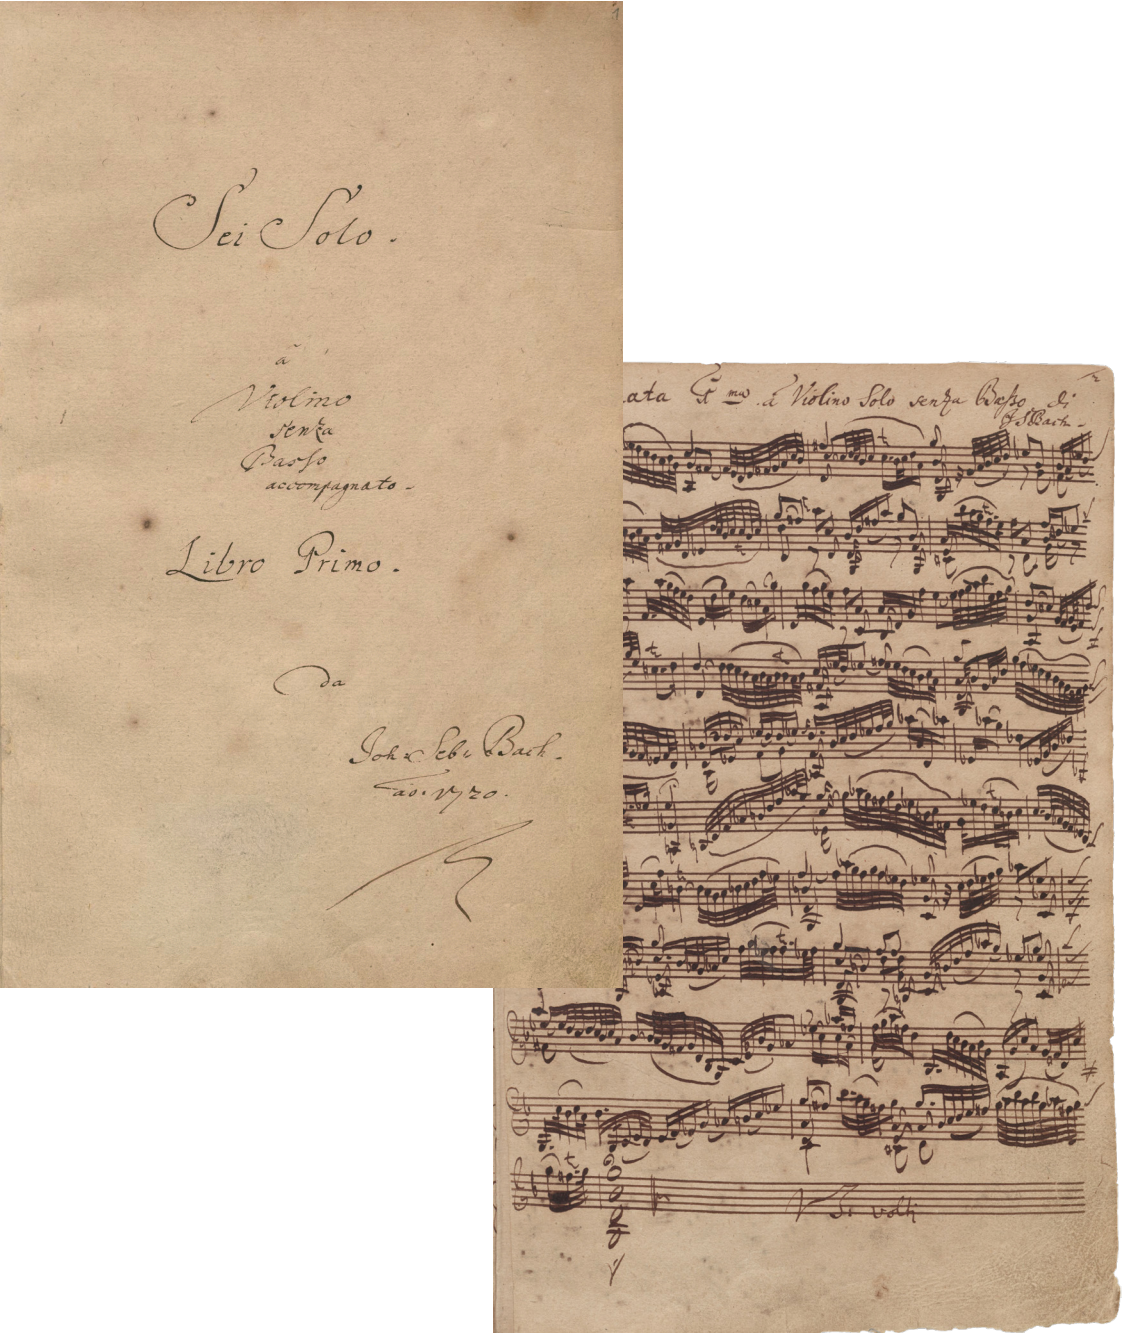 Sei Solo.
â
Violino
senza
Basso
accompagnato.
Libro Primo.
da
Joh: Seb: Bach.
ao. 1720.
ata 1ma â Violino Solo senza Basso di
J S Bach.
V. S. volti